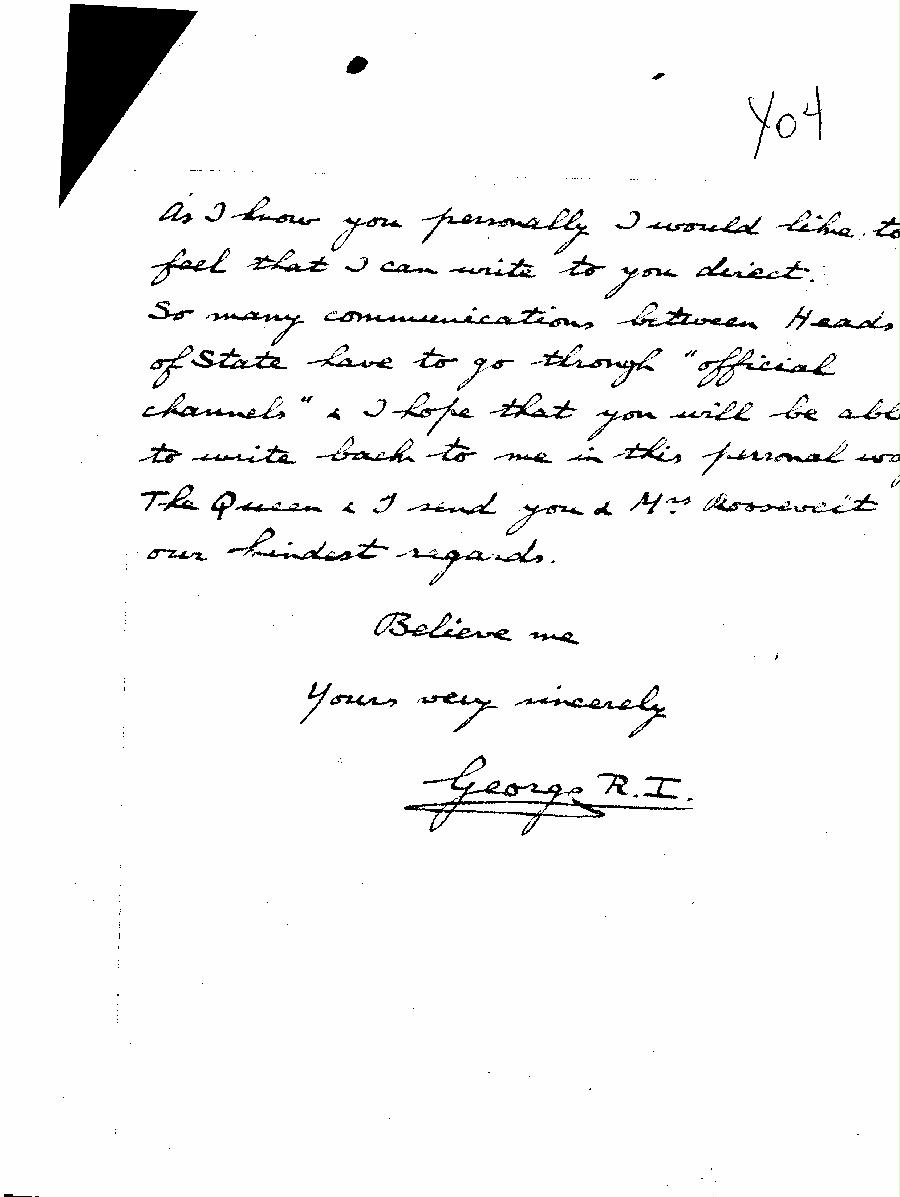 Yo4
As I know you personally I would like to
feel that I can write to you direct.
So many communications between Heads
of State have to go through "official
channels" & I hope that you will be abl
to write back to me in this personal wa
The Queen & I send you & Mrs Roosevelt
our kindest regards.
Believe me
Yours very sincerely
George R.I.